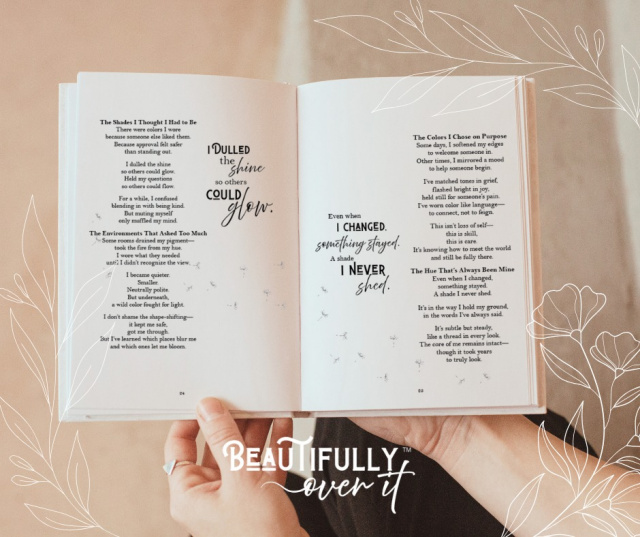 The Shades I Thought I Had to Be
There were colors I wore
because someone else liked them.
Because approval felt safer
than standing out.
I dulled the shine
so others could glow.
Held my questions
so others could flow.
For a while, I confused
blending in with being kind.
But muting myself
only muffled my mind.
The Environments That Asked Too Much
Some rooms drained my pigment—
took the fire from my hue.
I wore what they needed
until I didn't recognize the view.
I became quieter.
Smaller.
Neutrally polite.
But underneath,
a wild color fought for light.
I don't shame the shape-shifting—
it kept me safe,
got me through.
But I've learned which places blur me
and which ones let me bloom.
I DULLED
the
shine
so others
COULD
glow.
Even when
I CHANGED,
something stayed.
A shade
I NEVER
shed.
The Colors I Chose on Purpose
Some days, I softened my edges
to welcome someone in.
Other times, I mirrored a mood
to help someone begin.
I've matched tones in grief,
flashed bright in joy,
held still for someone's pain.
I've worn color like language—
to connect, not to feign.
This isn't loss of self—
this is skill,
this is care.
It's knowing how to meet the world
and still be fully there.
The Hue That's Always Been Mine
Even when I changed,
something stayed.
A shade I never shed.
It's in the way I hold my ground,
in the words I've always said.
It's subtle but steady,
like a thread in every look.
The core of me remains intact—
though it took years
to truly look.
BEAUTIFULLY™
over it